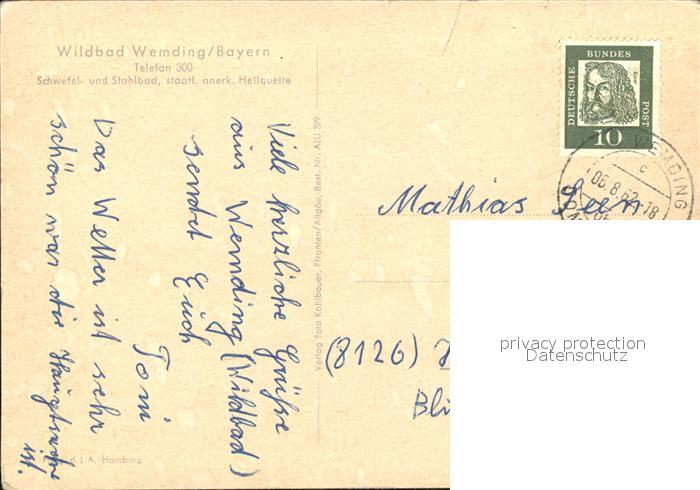 Wildbad Wemding/Bayern
Telefon 300
Schwefel- und Stahlbad, staatl. anerk. Heilquelle
Viele herzliche Grüße
aus Wemding (Wildbad)
sendet Euch
Toni
Das Wetter ist sehr
schön war die Hauptsache
ist.
Verlag Foto Kohlbauer, Pfronten/Allgäu, Best. Nr. ALU 399
DEUTSCHE
BUNDES
POST
10
WEMDING
c
06.8.62-18
Mathias
(8126)
privacy protection
Datenschutz
d. i. A. Hamburg